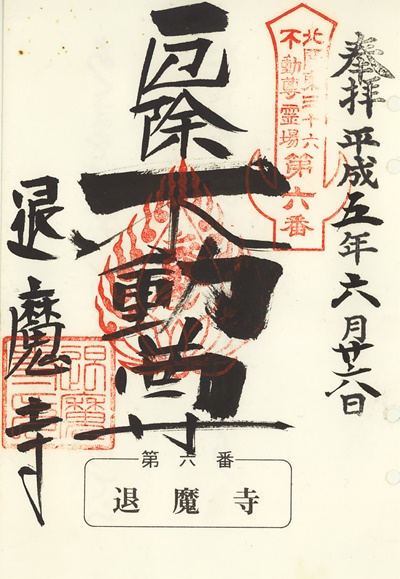 奉拝 平成五年六月廿六日
北関東三十六
不動尊霊場
第六番
厄除
不動尊
退魔寺
第六番
退魔寺